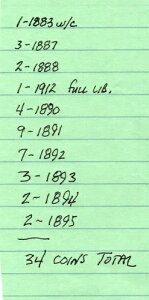 1-1883 w/c
3-1887
2-1888
1-1912 full LIB.
4-1890
9-1891
7-1892
3-1893
2-1894
2-1895
34 COINS TOTAL